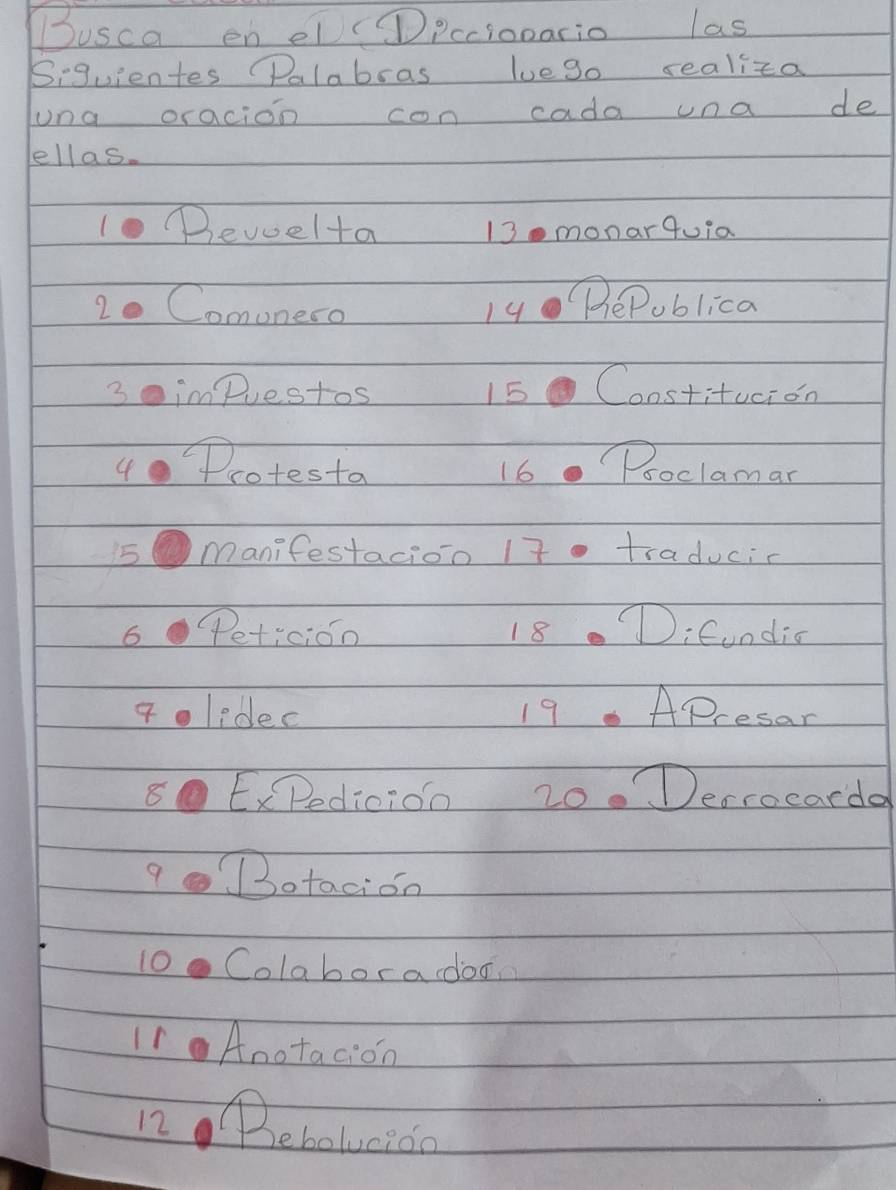 Busca en el Diccionario las
Siguientes Palabras luego realiza
una oración con cada una de
ellas.
1 • Revuelta 13 • monarquia
2 • Comunero 14 • RePublica
3 • imPuestos 15 • Constitución
4 • Protesta 16 • Proclamar
5 • manifestación 17 • traducir
6 • Petición 18 • Difundir
7 • lider 19 • APresar
8 • ExPedición 20 • Derrocarda
9 • Botación
10 • Colaborador
11 • Anotación
12 • Rebolución